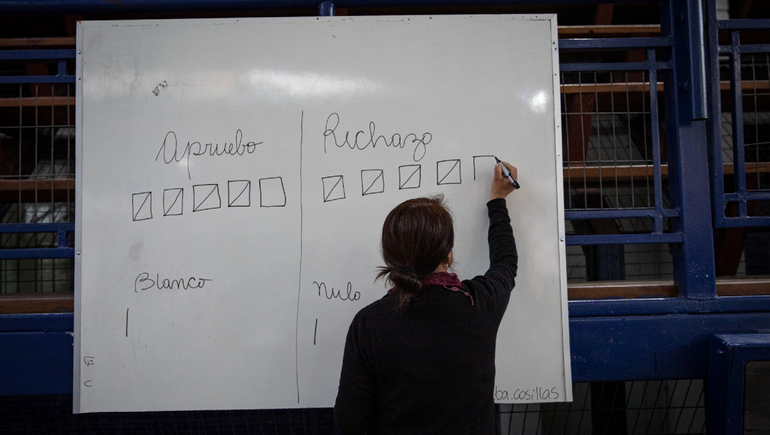 Apruebo
Rechazo
Blanco
Nulo
E
C
ba.cosillas